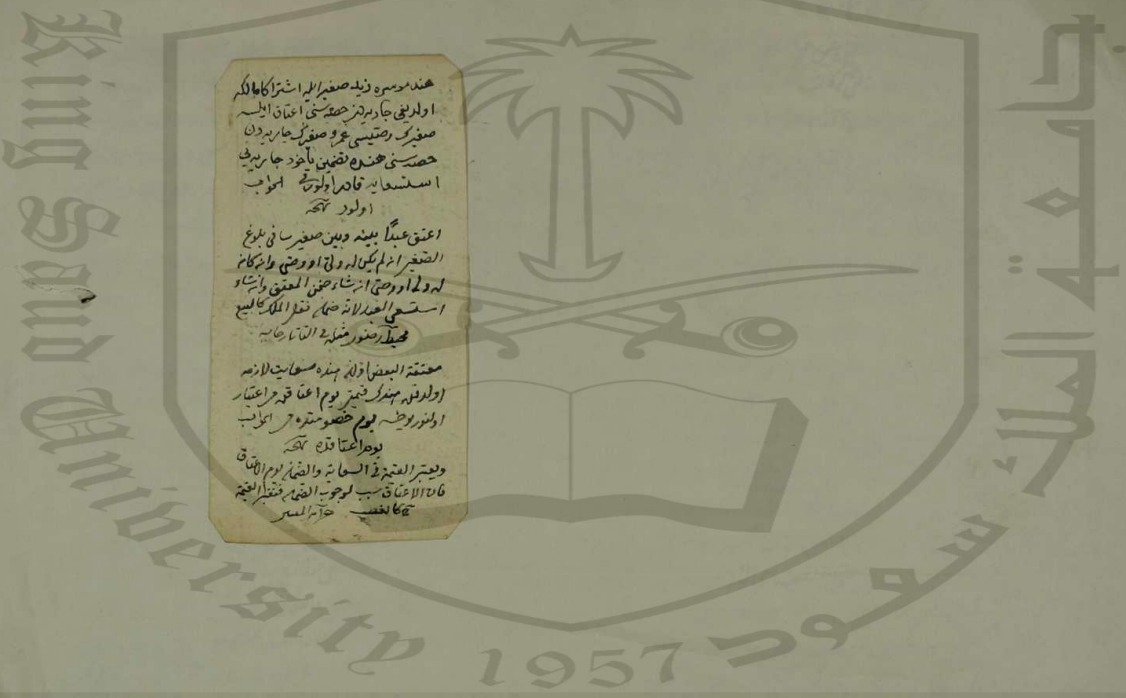 هند موسره زيد صغير ايله اشتراكا مالكه
اولديغی جاريه نك حصه سنی اعتاق ايلسه
صغيرك وصيسی عمرو صغيرك جاريه دن
حصه سنی هنده تضمين ياخود جاريه يی
استسعايه قادر اولورمی الجواب
اولور
اعتق عبدًا بينه وبين صغير يستأنی بلوغ
الصغير ان لم يكن له ولی او وصی وان كان
له ولی او وصی ان شاء ضمن المعتق وان شاء
استسعی العبد لانه ضمان نقل الملك كالبيع
محيط مثله فی التاتارخانيه
معتقة البعض اولان هنده سعايت لازمه
اولدقده هندك قيمتی يوم اعتاقی می اعتبار
اولنور يوخسه يوم خصومتده می الجواب
يوم اعتاقده
ويعتبر القيمة فی السعاية والضمان يوم الاعتاق
فان الاعتاق سبب لوجوب الضمان فتعتبر القيمة
كالغصب
King Saud University 1957
جامعة الملك سعود